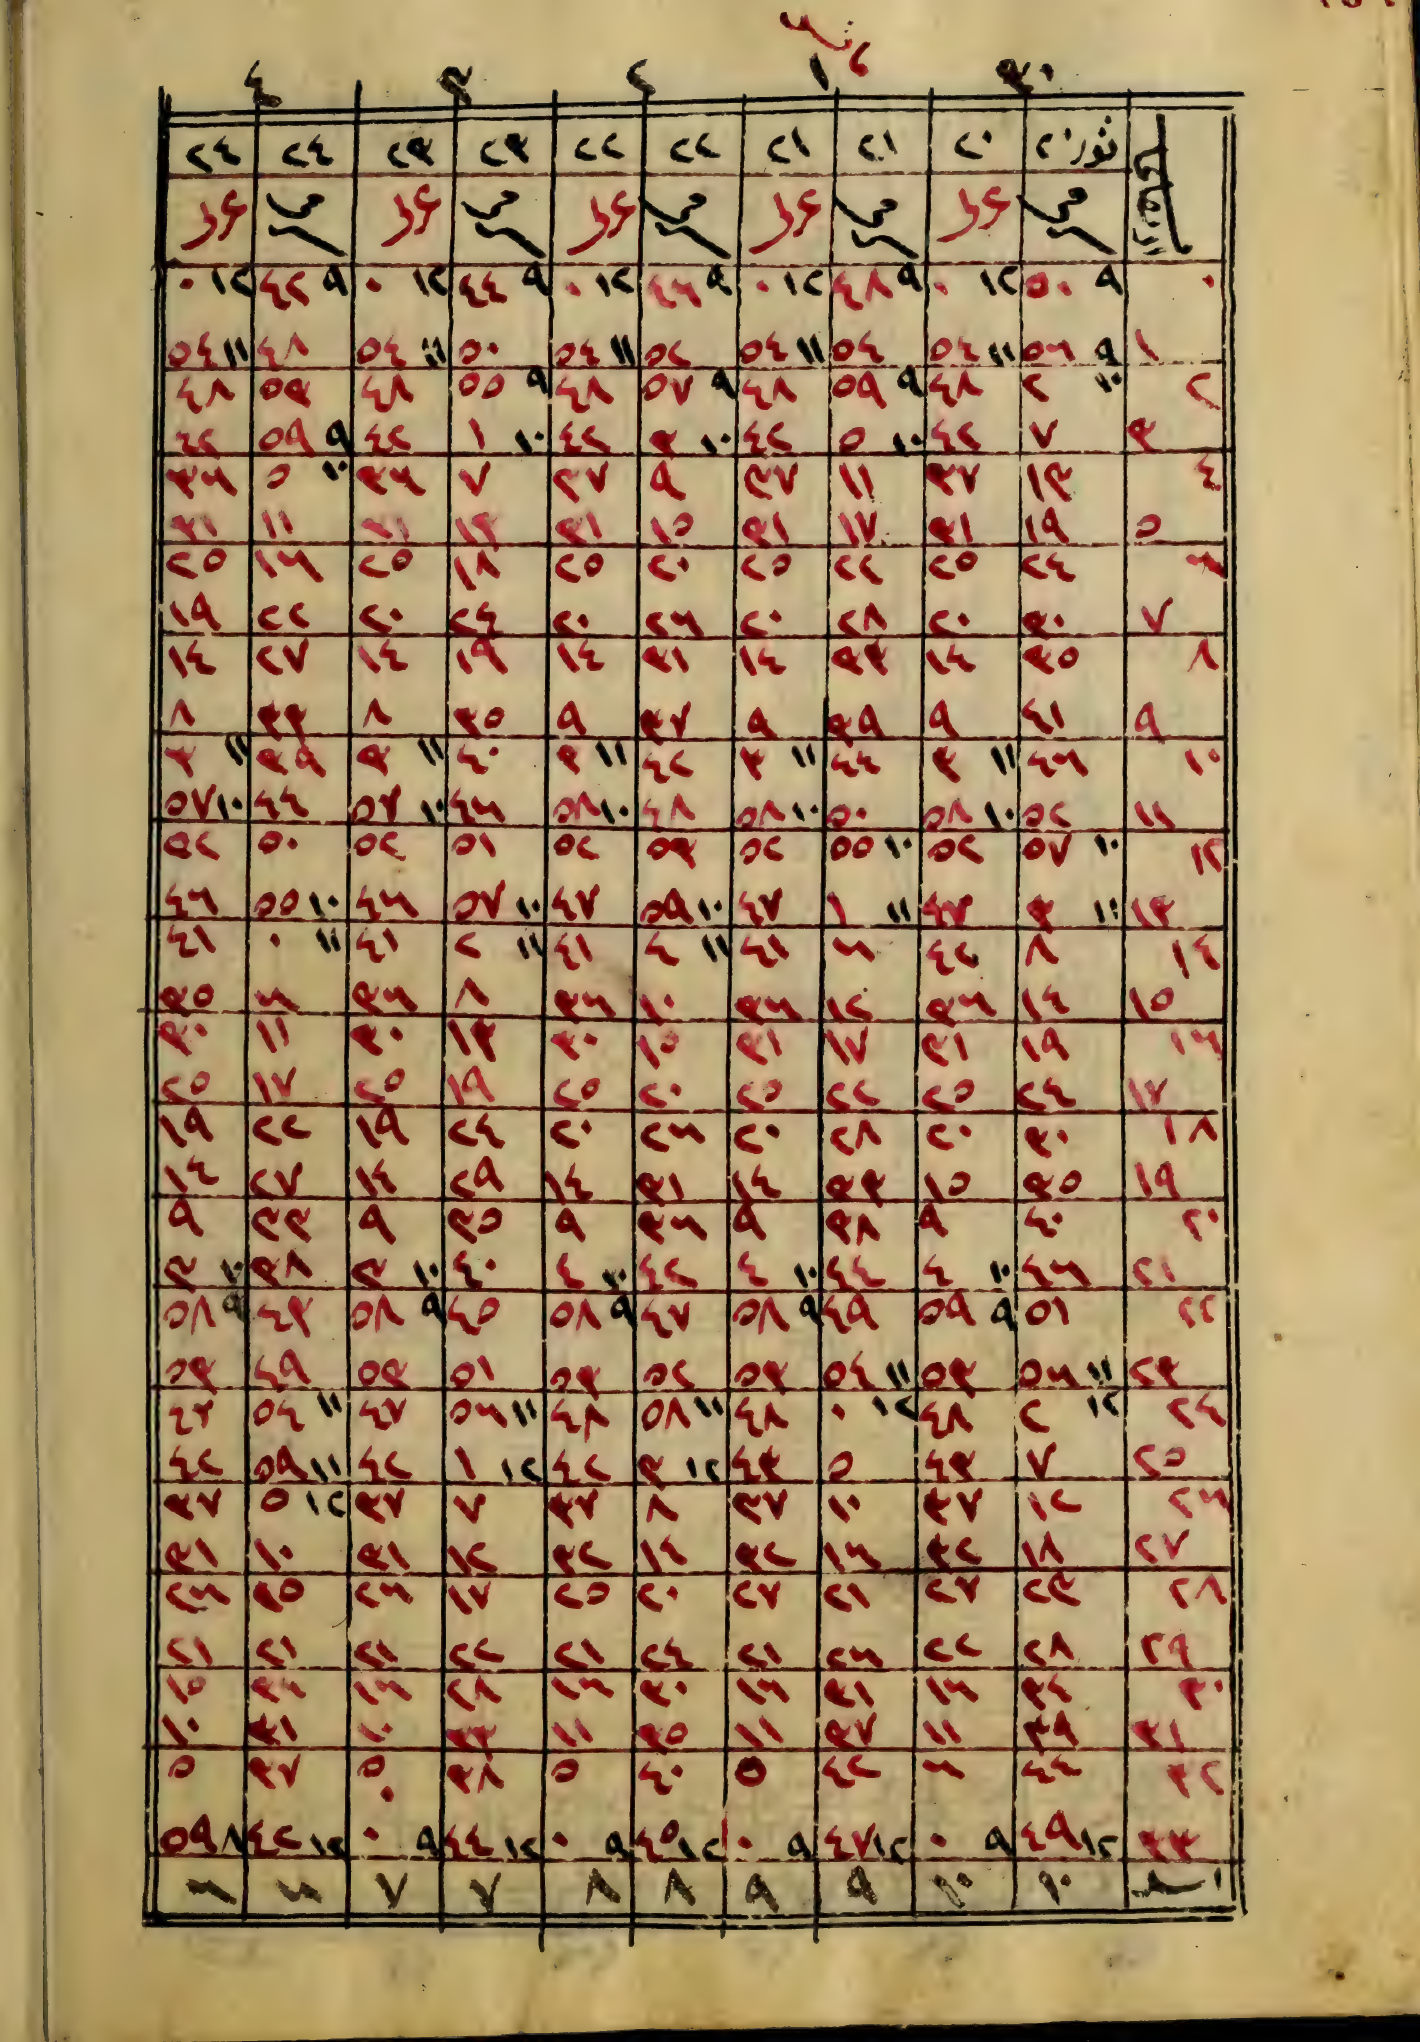 ٣٠ ١ ٢ ٣ ٤
ثور ٢٠ ٢٠ ٢١ ٢١ ٢٢ ٢٢ ٢٣ ٢٣ ٢٤ ٢٤
٠ ٩ ٥٠ ١٢ ٠ ٩ ٤٨ ١٢ ٠ ٩ ٤٦ ١٢ ٠ ٩ ٤٤ ١٢ ٠ ٩ ٤٢ ١٢ ٠
١ ٩ ٥٦ ١١ ٥٤ ٥٤ ١١ ٥٤ ٥٢ ١١ ٥٤ ٥٠ ١١ ٥٤ ٤٨ ١١ ٥٤
٢ ١٠ ٢ ٤٨ ٩ ٥٩ ٤٨ ٩ ٥٧ ٤٨ ٩ ٥٥ ٤٨ ٥٣ ٤٨
٣ ٧ ٤٢ ١٠ ٥ ٤٢ ١٠ ٣ ٤٢ ١٠ ١ ٤٢ ٩ ٥٩ ٤٢
٤ ١٣ ٣٧ ١١ ٣٧ ٩ ٣٧ ٧ ٣٦ ١٠ ٥ ٣٦
٥ ١٩ ٣١ ١٧ ٣١ ١٥ ٣١ ١٣ ٣١ ١١ ٣١
٦ ٢٤ ٢٥ ٢٢ ٢٥ ٢٠ ٢٥ ١٨ ٢٥ ١٦ ٢٥
٧ ٣٠ ٢٠ ٢٨ ٢٠ ٢٦ ٢٠ ٢٤ ٢٠ ٢٢ ١٩
٨ ٣٥ ١٤ ٣٣ ١٤ ٣١ ١٤ ١٩ ١٤ ٢٧ ١٤
٩ ٤١ ٩ ٣٩ ٩ ٣٧ ٩ ٣٥ ٨ ٣٣ ٨
١٠ ٤٦ ١١ ٣ ٤٤ ١١ ٣ ٤٢ ١١ ٣ ٤٠ ١١ ٣ ٣٩ ١١ ٣
١١ ٥٢ ١٠ ٥٨ ٥٠ ١٠ ٥٨ ٤٨ ١٠ ٥٨ ٤٦ ١٠ ٥٧ ٤٤ ١٠ ٥٧
١٢ ١٠ ٥٧ ٥٢ ١٠ ٥٥ ٥٢ ٥٣ ٥٢ ٥١ ٥٢ ٥٠ ٥٢
١٣ ١١ ٣ ٤٧ ١١ ١ ٤٧ ١٠ ٥٩ ٤٧ ١٠ ٥٧ ٤٦ ١٠ ٥٥ ٤٦
١٤ ٨ ٤٢ ٦ ٤١ ١١ ٤ ٤١ ١١ ٢ ٤١ ١١ ٠ ٤١
١٥ ١٤ ٣٦ ١٢ ٣٦ ١٠ ٣٦ ٨ ٣٦ ٦ ٣٥
١٦ ١٩ ٣١ ١٧ ٣١ ١٥ ٣٠ ١٣ ٣٠ ١١ ٣٠
١٧ ٢٤ ٢٥ ٢٢ ٢٥ ٢٠ ٢٥ ١٩ ٢٥ ١٧ ٢٥
١٨ ٣٠ ٢٠ ٢٨ ٢٠ ٢٦ ٢٠ ٢٤ ١٩ ٢٢ ١٩
١٩ ٣٥ ١٥ ٣٣ ١٤ ٣١ ١٤ ٢٩ ١٤ ٢٧ ١٤
٢٠ ٤٠ ٩ ٣٨ ٩ ٣٦ ٩ ٣٥ ٩ ٣٣ ٩
٢١ ٤٦ ١٠ ٤ ٤٤ ١٠ ٤ ٤٢ ١٠ ٤ ٤٠ ١٠ ٣ ٣٨ ١٠ ٣
٢٢ ٥١ ٩ ٥٩ ٤٩ ٩ ٥٨ ٤٧ ٩ ٥٨ ٤٥ ٩ ٥٨ ٤٣ ٩ ٥٨
٢٣ ١١ ٥٦ ٥٣ ١١ ٥٤ ٥٣ ٥٢ ٥٣ ٥١ ٥٣ ٤٩ ٥٣
٢٤ ١٢ ٢ ٤٨ ١٢ ٠ ٤٨ ١١ ٥٨ ٤٨ ١١ ٥٦ ٤٧ ١١ ٥٤ ٤٧
٢٥ ٧ ٤٣ ٥ ٤٣ ١٢ ٣ ٤٢ ١٢ ١ ٤٢ ١١ ٥٩ ٤٢
٢٦ ١٢ ٣٧ ١٠ ٣٧ ٨ ٣٧ ٧ ٣٧ ١٢ ٥ ٣٧
٢٧ ١٨ ٣٢ ١٦ ٣٢ ١٤ ٣٢ ١٢ ٣١ ١٠ ٣١
٢٨ ٢٣ ٢٧ ٢١ ٢٧ ٢٠ ٢٥ ١٧ ٢٦ ٣٥ ٢٦
٢٩ ٢٨ ٢٢ ٢٦ ٢١ ٢٤ ٢١ ٢٢ ٢١ ٢١ ٢١
٣٠ ٣٤ ١٦ ٣١ ١٦ ٣٠ ١٦ ٢٨ ١٦ ٣٦ ١٥
٣١ ٣٩ ١١ ٣٧ ١١ ٣٥ ١١ ٣٣ ١٠ ٣١ ١٠
٣٢ ٤٤ ٦ ٤٢ ٥ ٤٠ ٥ ٣٨ ٥ ٣٧ ٥
٣٣ ١٢ ٤٩ ٩ ٠ ١٢ ٤٧ ٩ ٠ ١٢ ٤٥ ٩ ٠ ١٢ ٤٤ ٩ ٠ ١٢ ٤٢ ٨ ٥٩
١٠ ١٠ ٩ ٩ ٨ ٨ ٧ ٧ ٦ ٦